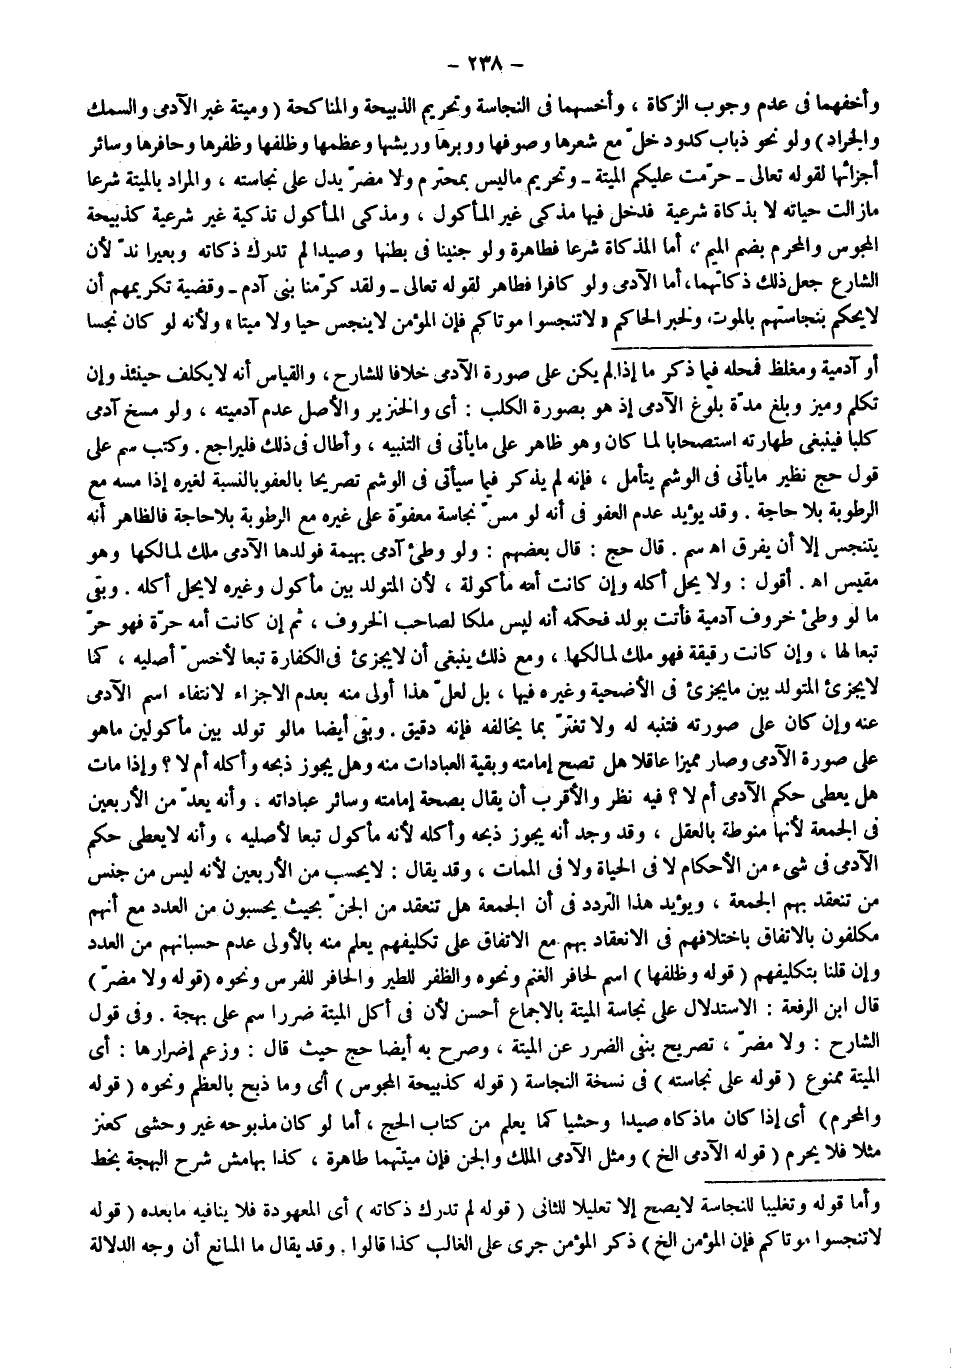 – ٢٣٨ –
وأخفهما فى عدم وجوب الزكاة ، وأخسهما فى النجاسة وتحريم الذبيحة والمناكحة ( وميتة غير الآدمى والسمك
والجراد ) ولو نحو ذباب كدود خل ّ مع شعرها وصوفها ووبرها وريشها وعظمها وظلفها وظفرها وحافرها وسائر
أجزائها لقوله تعالى ـ حرّمت عليكم الميتة ـ وتحريم ماليس بمحترم ولا مضرّ يدل على نجاسته ، والمراد بالميتة شرعا
مازالت حياته لا بذكاة شرعية فدخل فيها مذكى غير المأكول ، ومذكى المأكول تذكية غير شرعية كذبيحة
المجوس والمحرم بضم الميم ، أما المذكاة شرعا فطاهرة ولو جنينا فى بطنها وصيدا لم تدرك ذكاته وبعيرا ندّ لأن
الشارع جعل ذلك ذكاتهما، أما الآدمى ولو كافرا فطاهر لقوله تعالى ـ ولقد كرّمنا بنى آدم ـ وقضية تكريمهم أن
لايحكم بنجاستهم بالموت، ولخبر الحاكم « لاتنجسوا موتاكم فإن المؤمن لاينجس حيا ولا ميتا » ولأنه لو كان نجسا
أو آدمية ومغلظ فمحله فيما ذكر ما إذا لم يكن على صورة الآدمى خلافا للشارح ، والقياس أنه لايكلف حينئذ وإن
تكلم وميز وبلغ مدّة بلوغ الآدمى إذ هو بصورة الكلب : أى والخنزير والأصل عدم آدميته ، ولو مسخ آدمى
كلبا فينبغى طهارته استصحابا لما كان وهو ظاهر على مايأتى فى التنبيه ، وأطال فى ذلك فليراجع . وكتب سم على
قول حج نظير مايأتى فى الوشم يتأمل ، فإنه لم يذكر فيما سيأتى فى الوشم تصريحا بالعفو بالنسبة لغيره إذا مسه مع
الرطوبة بلا حاجة . وقد يؤيد عدم العفو فى أنه لو مسّ نجاسة معفوّة على غيره مع الرطوبة بلاحاجة فالظاهر أنه
يتنجس إلا أن يفرق اهـ سم . قال حج : قال بعضهم : ولو وطئ آدمى بهيمة فولدها الآدمى ملك لمالكها وهو
مقيس اهـ . أقول : ولا يحل أكله وإن كانت أمه مأكولة ، لأن المتولد بين مأكول وغيره لايحل أكله . وبقى
ما لو وطئ خروف آدمية فأتت بولد فحكمه أنه ليس ملكا لصاحب الخروف ، ثم إن كانت أمه حرّة فهو حرّ
تبعا لها ، وإن كانت رقيقة فهو ملك لمالكها ، ومع ذلك ينبغى أن لايجزئ فى الكفارة تبعا لأخسّ أصليه ، كما
لايجزئ المتولد بين مايجزئ فى الأضحية وغيره فيها ، بل لعلّ هذا أولى منه بعدم الاجزاء لانتفاء اسم الآدمى
عنه وإن كان على صورته فتنبه له ولا تغترّ بما يخالفه فإنه دقيق . وبقى أيضا مالو تولد بين مأكولين ماهو
على صورة الآدمى وصار مميزا عاقلا هل تصح إمامته وبقية العبادات منه وهل يجوز ذبحه وأكله أم لا ؟ وإذا مات
هل يعطى حكم الآدمى أم لا ؟ فيه نظر والأقرب أن يقال بصحة إمامته وسائر عباداته ، وأنه يعدّ من الأربعين
فى الجمعة لأنها منوطة بالعقل ، وقد وجد أنه يجوز ذبحه وأكله لأنه مأكول تبعا لأصليه ، وأنه لايعطى حكم
الآدمى فى شىء من الأحكام لا فى الحياة ولا فى الممات ، وقد يقال : لايحسب من الأربعين لأنه ليس من جنس
من تنعقد بهم الجمعة ، ويؤيد هذا التردد فى أن الجمعة هل تنعقد من الجنّ بحيث يحسبون من العدد مع أنهم
مكلفون بالاتفاق باختلافهم فى الانعقاد بهم مع الاتفاق على تكليفهم يعلم منه بالأولى عدم حسبانهم من العدد
وإن قلنا بتكليفهم ( قوله وظلفها ) اسم لحافر الغنم ونحوه والظفر للطير والحافر للفرس ونحوه (قوله ولا مضرّ )
قال ابن الرفعة : الاستدلال على نجاسة الميتة بالاجماع أحسن لأن فى أكل الميتة ضررا سم على بهجة . وفى قول
الشارح : ولا مضرّ ، تصريح بنفى الضرر عن الميتة ، وصرح به أيضا حج حيث قال : وزعم إضرارها : أى
الميتة ممنوع ( قوله على نجاسته ) فى نسخة النجاسة ( قوله كذبيحة المجوس ) أى وما ذبح بالعظم ونحوه ( قوله
والمحرم ) أى إذا كان ماذكاه صيدا وحشيا كما يعلم من كتاب الحج ، أما لو كان مذبوحه غير وحشى كعنز
مثلا فلا يحرم ( قوله الآدمى الخ ) ومثل الآدمى الملك والجن فإن ميتتهما طاهرة ، كذا بهامش شرح البهجة بخط
وأما قوله وتغليبا للنجاسة لايصح إلا تعليلا للثانى ( قوله لم تدرك ذكاته ) أى المعهودة فلا ينافيه مابعده ( قوله
لاتنجسوا موتاكم فإن المؤمن الخ ) ذكر المؤمن جرى على الغالب كذا قالوا . وقد يقال ما المانع أن وجه الدلالة